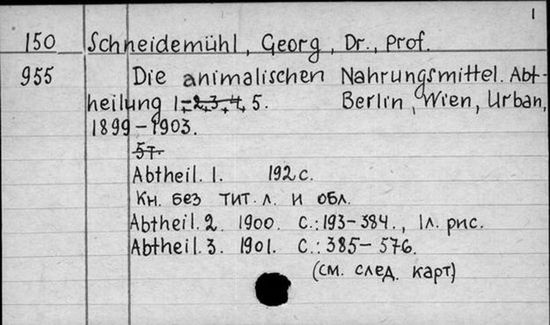 1
150 Schneidemühl, Georg, Dr., Prof.
955 Die animalischen Nahrungsmittel. Abt-
heilung 1,-2,3,4, 5. Berlin, Wien, Urban,
1899-1903.
5т.
Abtheil. 1. 192 с.
Кн. без тит. л. и обл.
Abtheil. 2. 1900. С.: 193-384., 1 л. рис.
Abtheil. 3. 1901. С.: 385-576.
(см. след. карт)